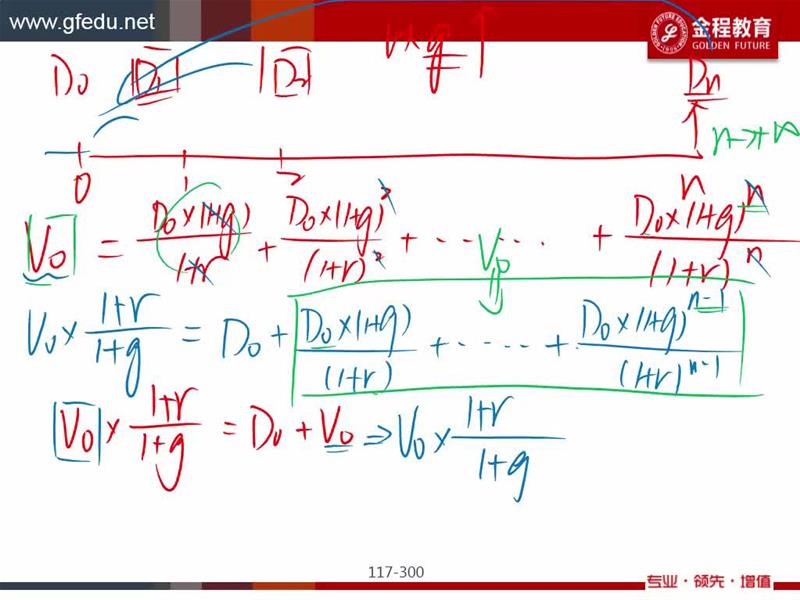 www.gfedu.net
金程教育
GOLDEN FUTURE
D₀ D₁ D₂ Dn
n→∞
0 1 2 n
V₀ = D₀×(1+g)/(1+r) + D₀×(1+g)²/(1+r)² + ······ + D₀×(1+g)ⁿ/(1+r)ⁿ
V₀
V₀ × (1+r)/(1+g) = D₀ + D₀×(1+g)/(1+r) + ····· + D₀×(1+g)ⁿ⁻¹/(1+r)ⁿ⁻¹
V₀ × (1+r)/(1+g) = D₀ + V₀ ⇒ V₀ × (1+r)/(1+g)
117-300
专业·领先·增值